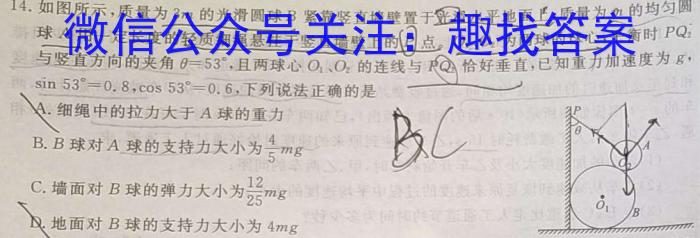 14.如图所示,质量为3m的光滑圆球B紧靠竖直墙壁置于
质量为m的均匀圆
球A
微信公众号关注:趣找答案
点
时PQ₂
与竖直方向的夹角θ=53°,且两球心O₁、O₂的连线与PQ₂恰好垂直,已知重力加速度为g,
sin 53°=0.8,cos 53°=0.6,下列说法正确的是
A.细绳中的拉力大于A球的重力
B.B球对A球的支持力大小为4/5mg
C.墙面对B球的弹力大小为12/25mg
D.地面对B球的支持力大小为4mg
BC
P
θ
A
O₂
O₁
B